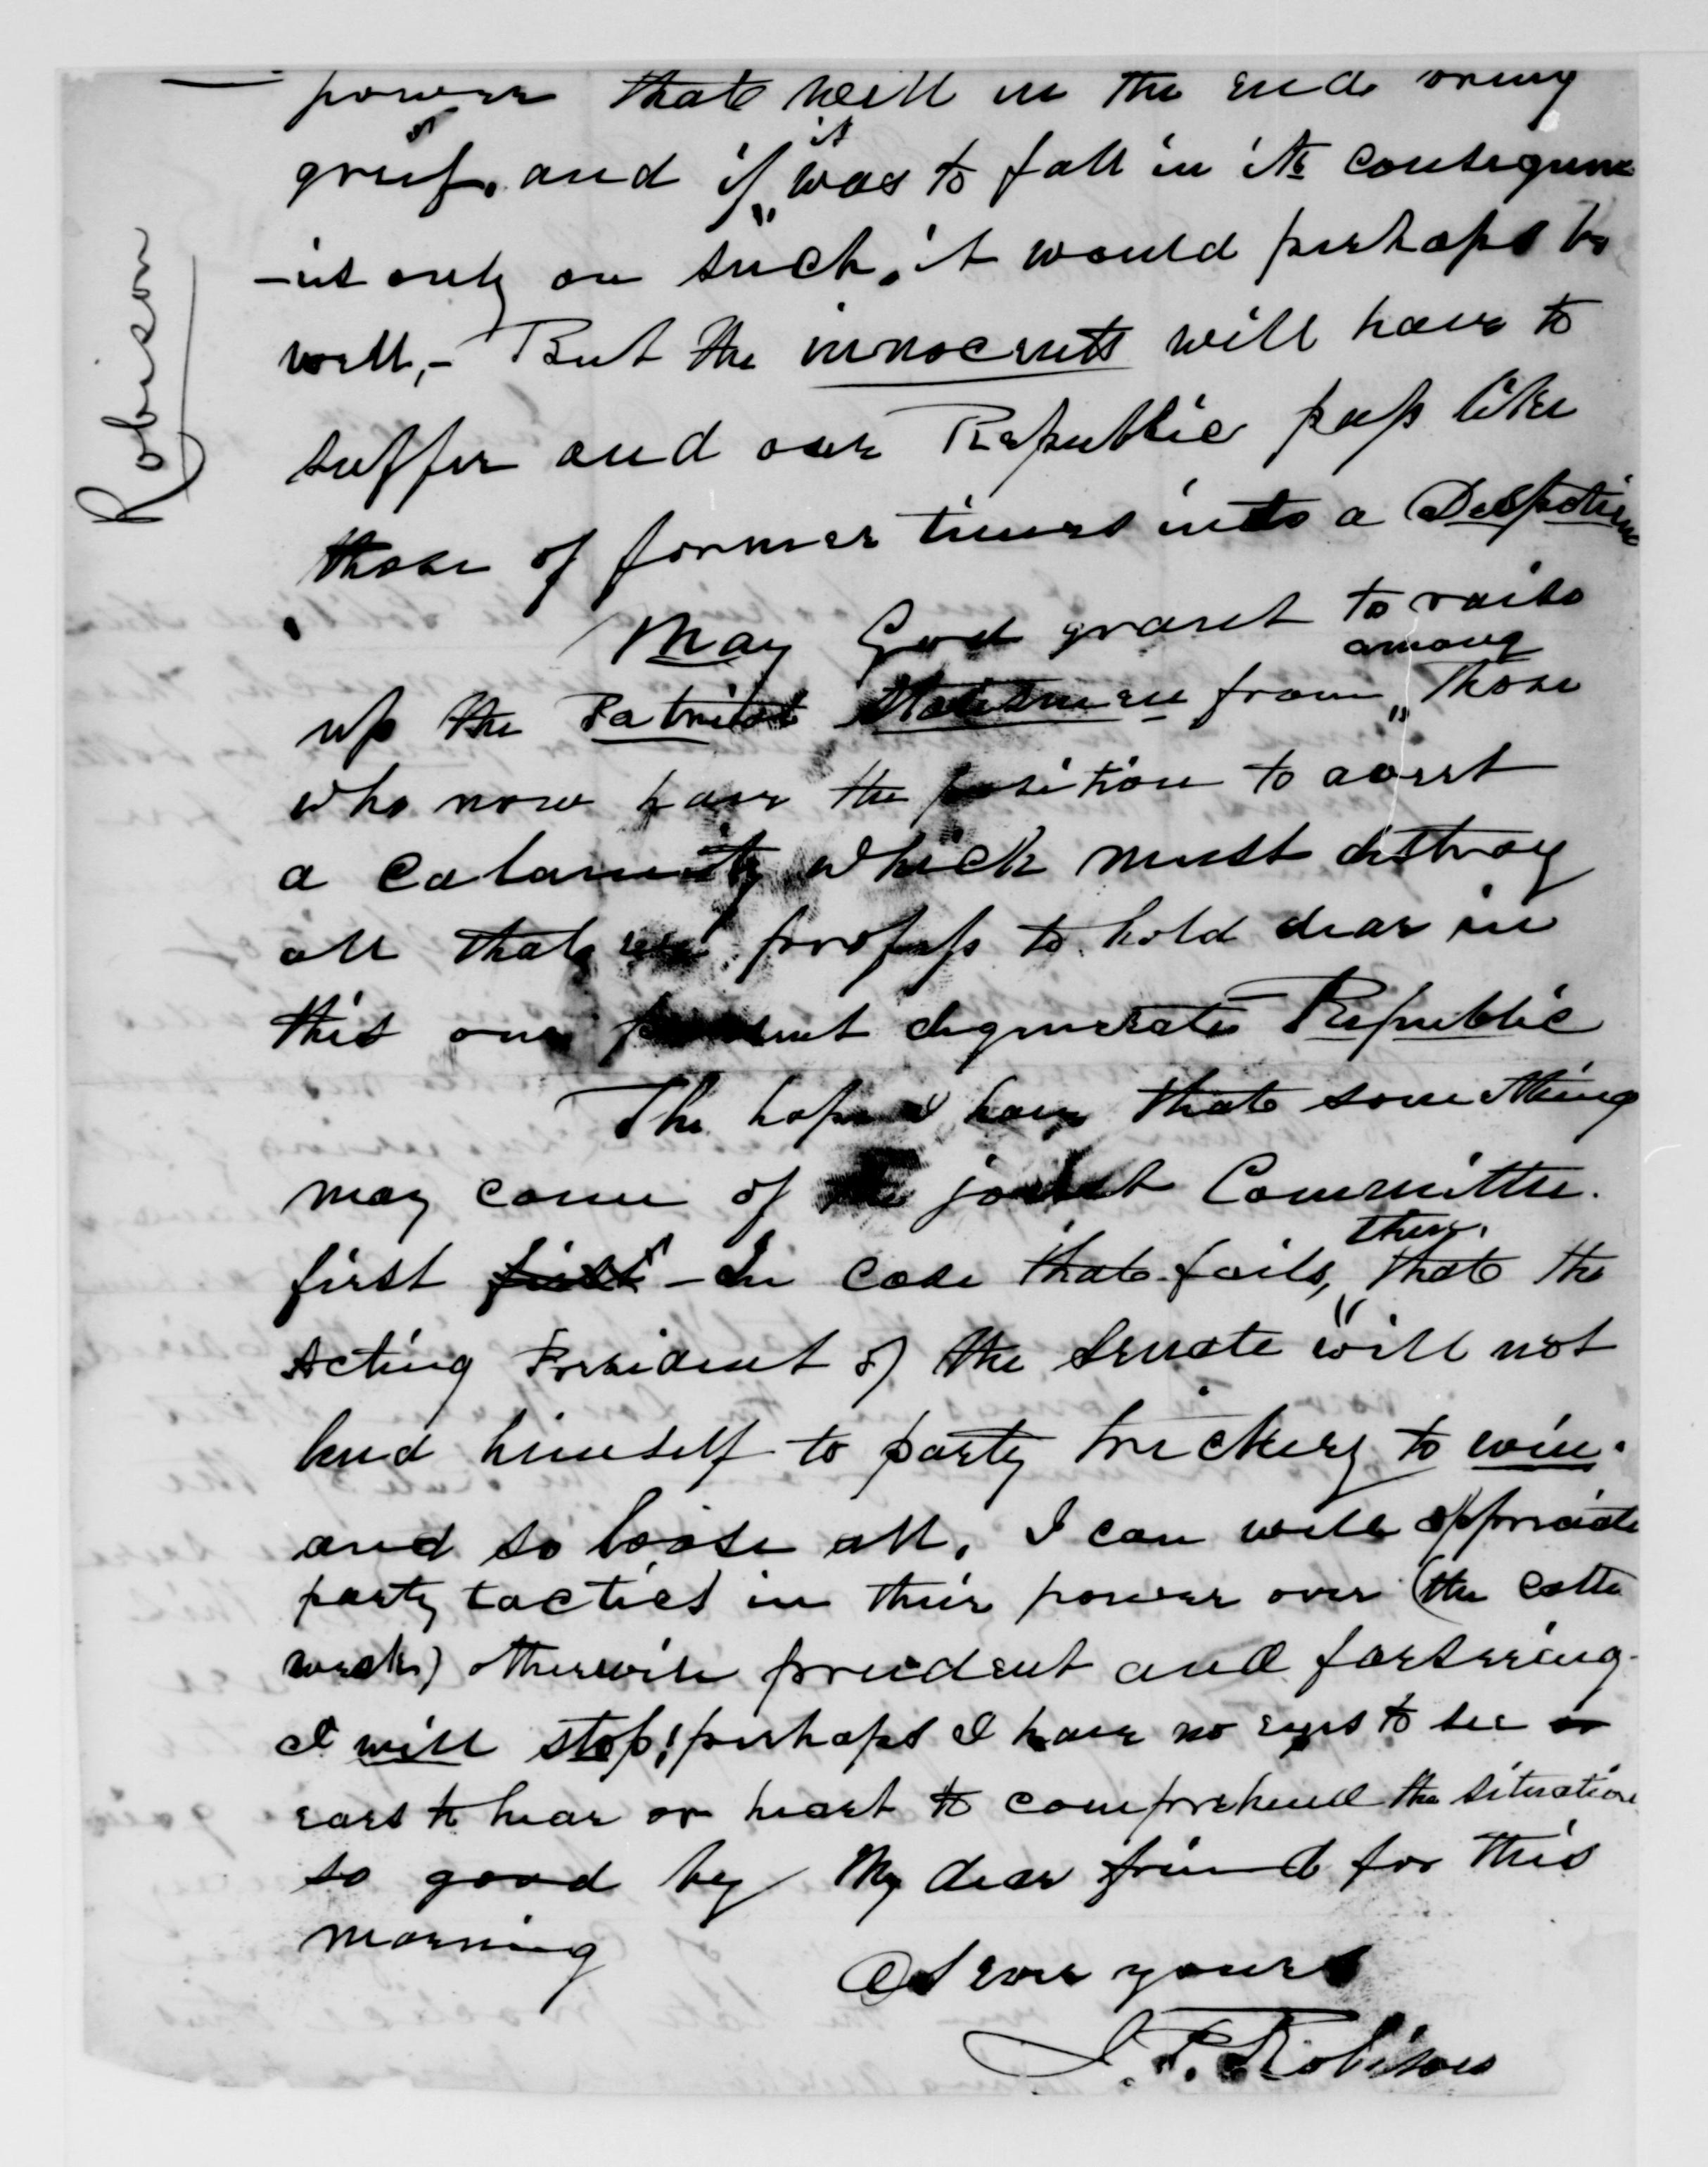 power that will in the end bring
grief, and if it was to fall in its consequence
-is only on such, it would perhaps be
well,- But the innocents will have to
suffer and our Republic pass like
those of former times into a Despotism
May God grant to raise
among
up the Patriot Statesmen from those
who now have the position to avert
a calamity which must distroy
all that we profess to hold dear in
this our present degenerate Republic
The hope I have that something
may come of the joint Committee.
first first - In case that fails, that the
then,
Acting President of the Senate will not
lend himself to party trickery to win.
and so loose all, I can well appreciate
party tactics in their power over (the
weak) otherwise prudent and farseeing-
I will stop! perhaps I have no eyes to see or
ears to hear or heart to comprehend the situation
so good by My dear friend for this
morning
As ever yours
J. P. Robison
Robison